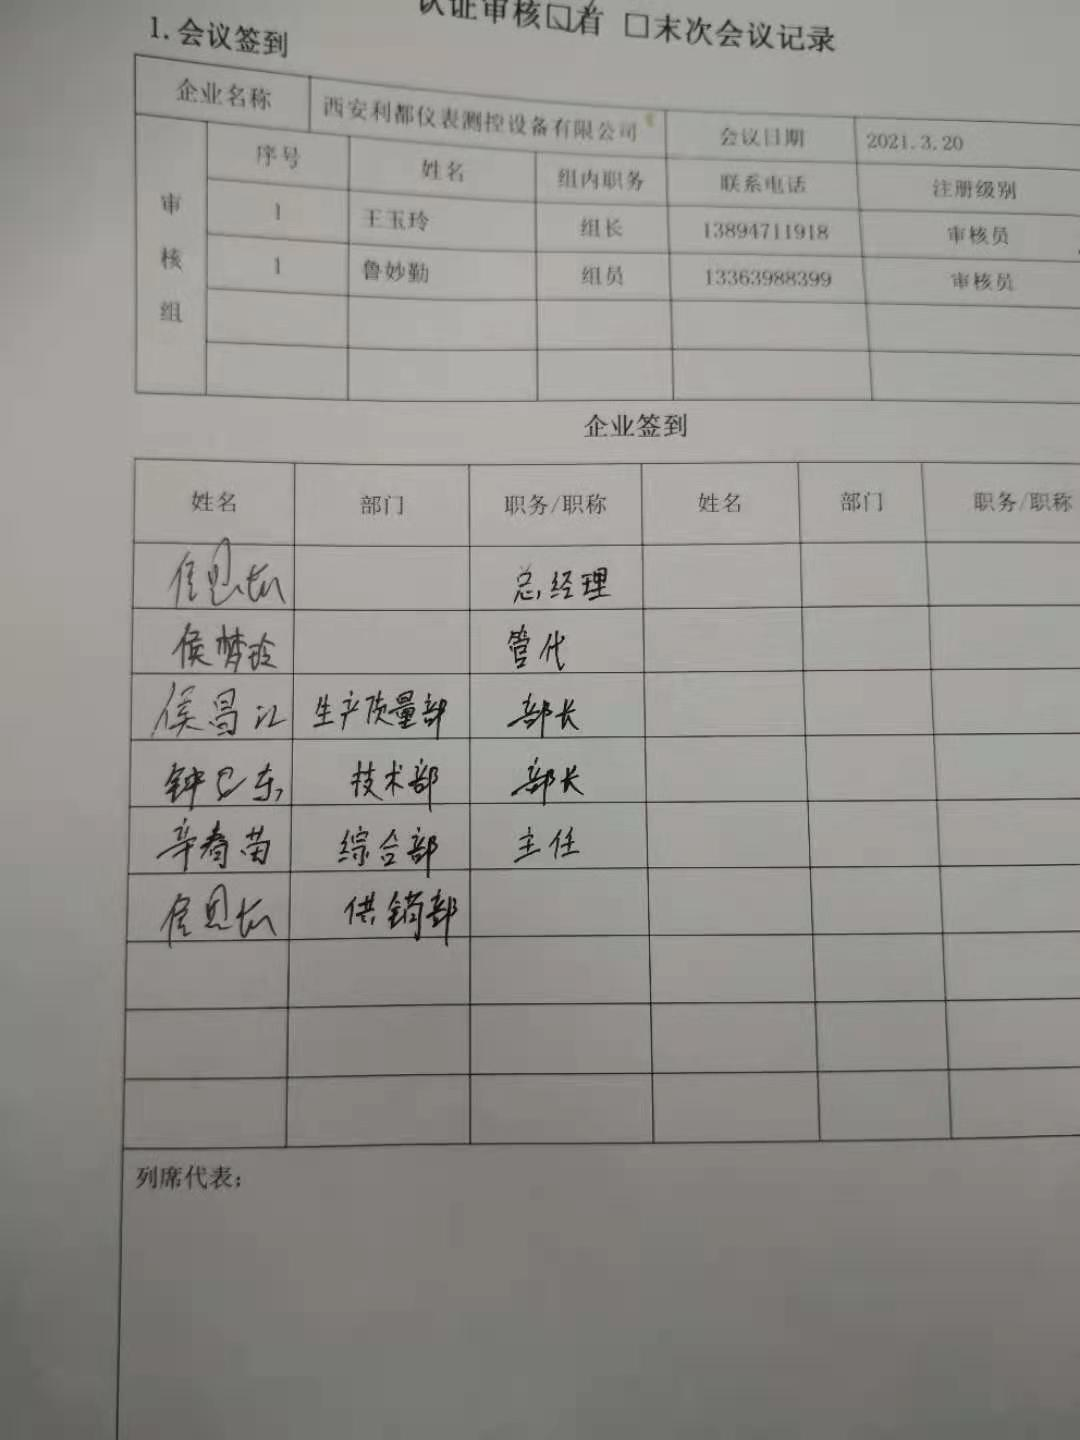 认证审核☑首 □末次会议记录
1.会议签到
企业名称 西安利都仪表测控设备有限公司 会议日期 2021.3.20
审核组
序号 姓名 组内职务 联系电话 注册级别
1 王玉玲 组长 13894711918 审核员
1 鲁妙勤 组员 13363988399 审核员
企业签到
姓名 部门 职务/职称 姓名 部门 职务/职称
总经理
侯梦玲 管代
侯昌江 生产质量部 部长
钟 东 技术部 部长
辛春苗 综合部 主任
供销部
列席代表: